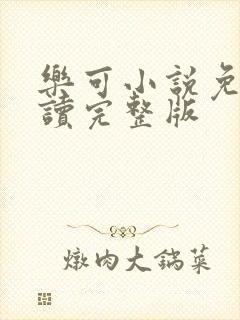 樂可小說免
讀完整版
燉肉大鍋菜